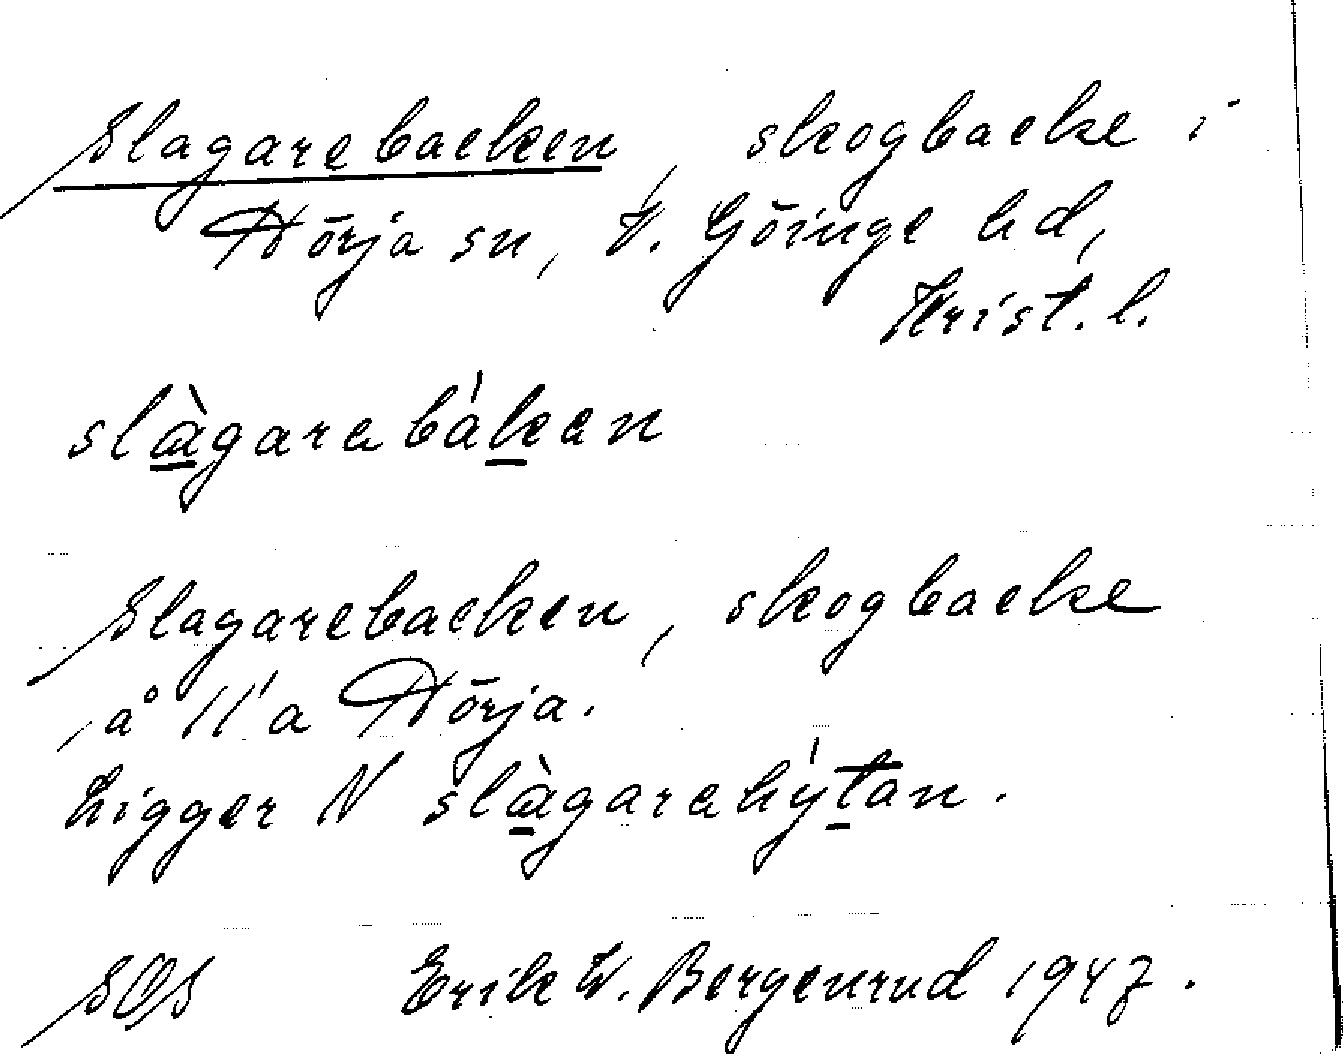 Slagarebacken, skogbacke i
Hörja sn, V. Göinge hd,
Krist. l.
slàgarabákan
Slagarebacken, skogbacke
å 11'a Hörja.
Ligger N slàgarahýtan.
SOS Erik W. Bergenrud 1947.